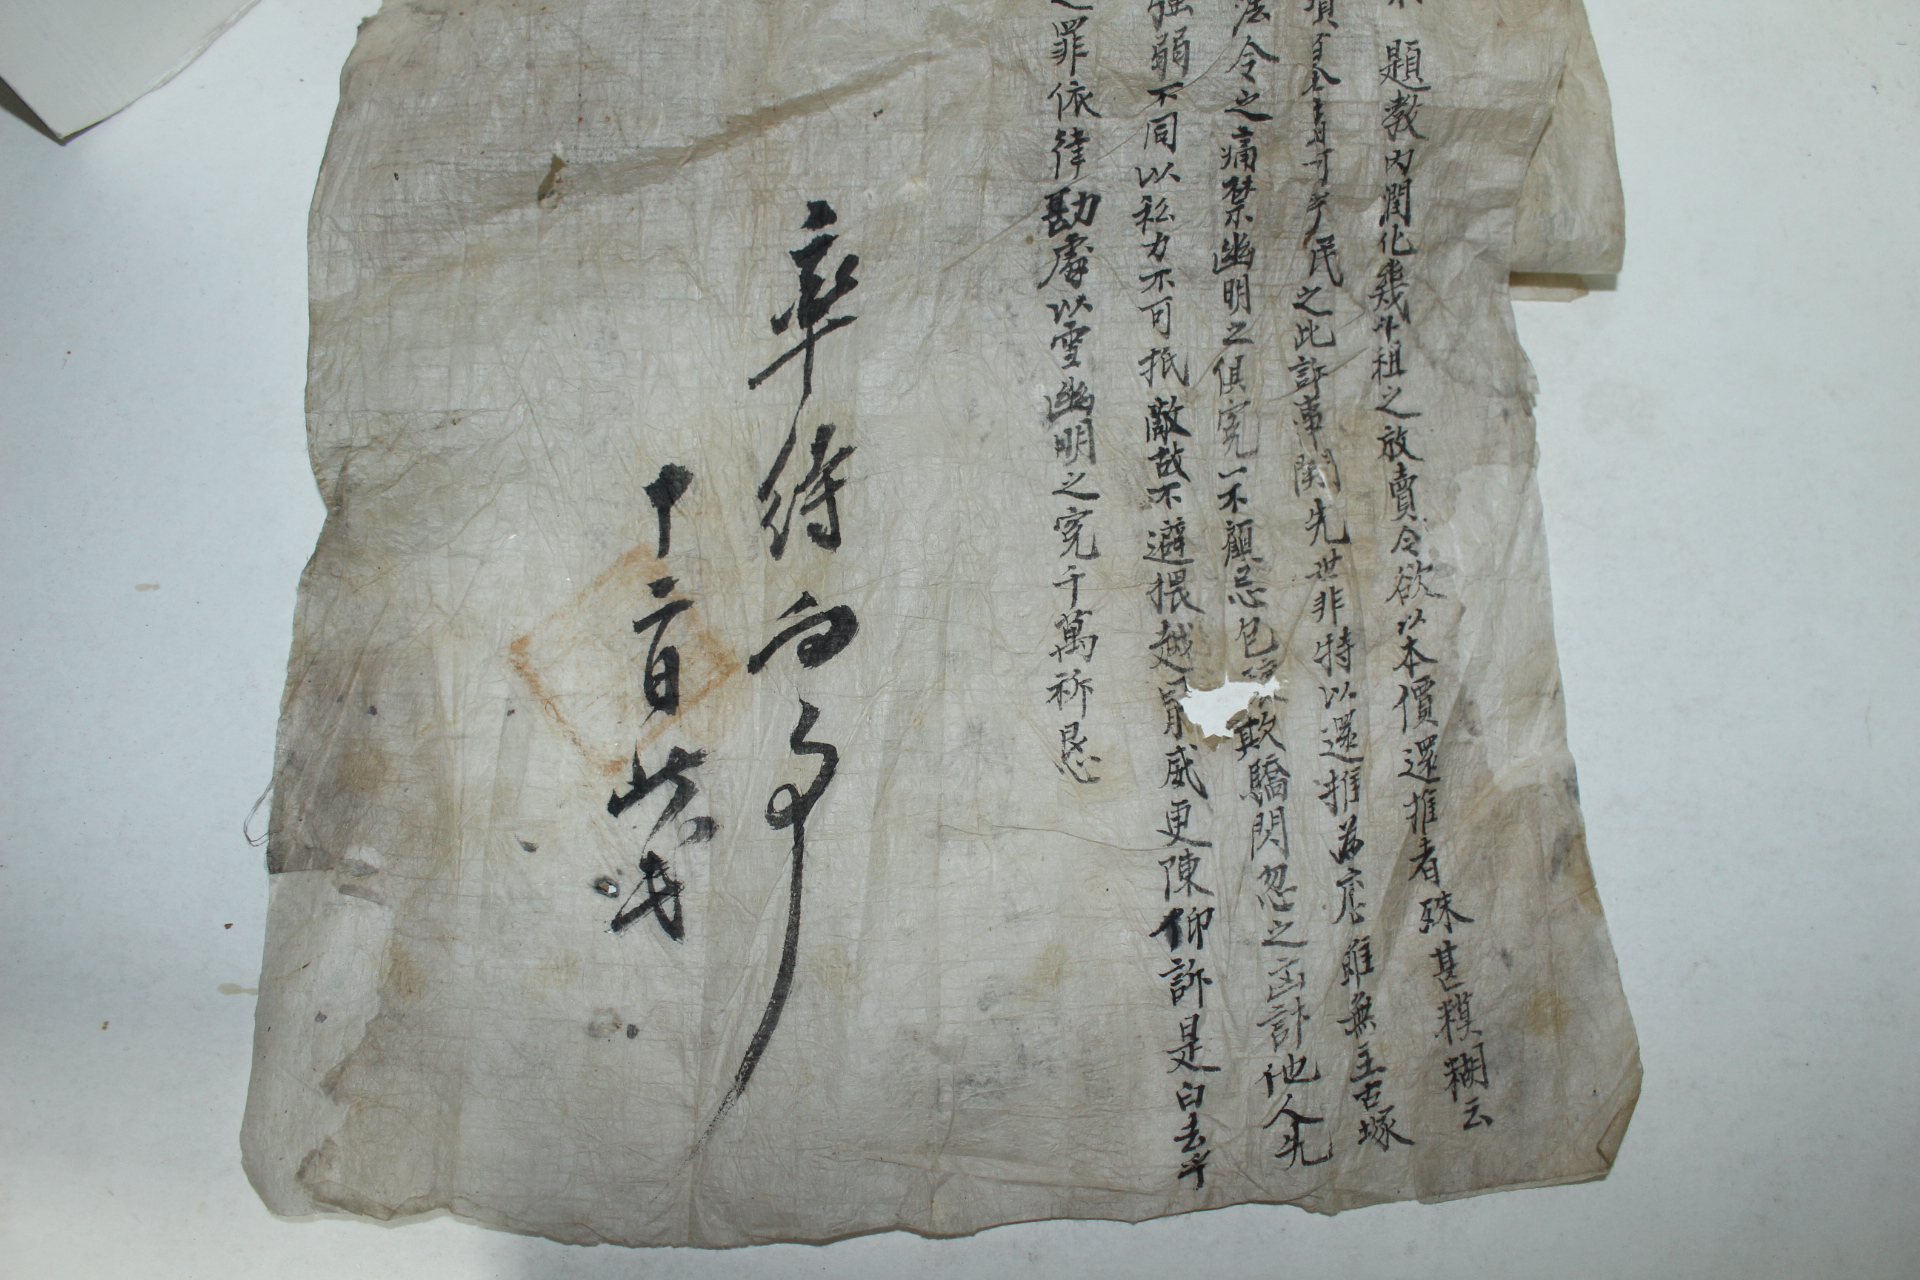 題教內潤化幾斗租之放賣今欲以本價還推者殊甚糢糊云
民之此訴事關先世非特以還推為應雖無主古塚
法令之痛禁幽明之俱寃一不顧忌包欺驕閃忽之凶計他人先
强弱不同以私力不可抵敵故不避猥越冒威更陳仰訴是白去乎
之罪依律勘處以雪幽明之寃千萬祈恳
率待向事
十二日